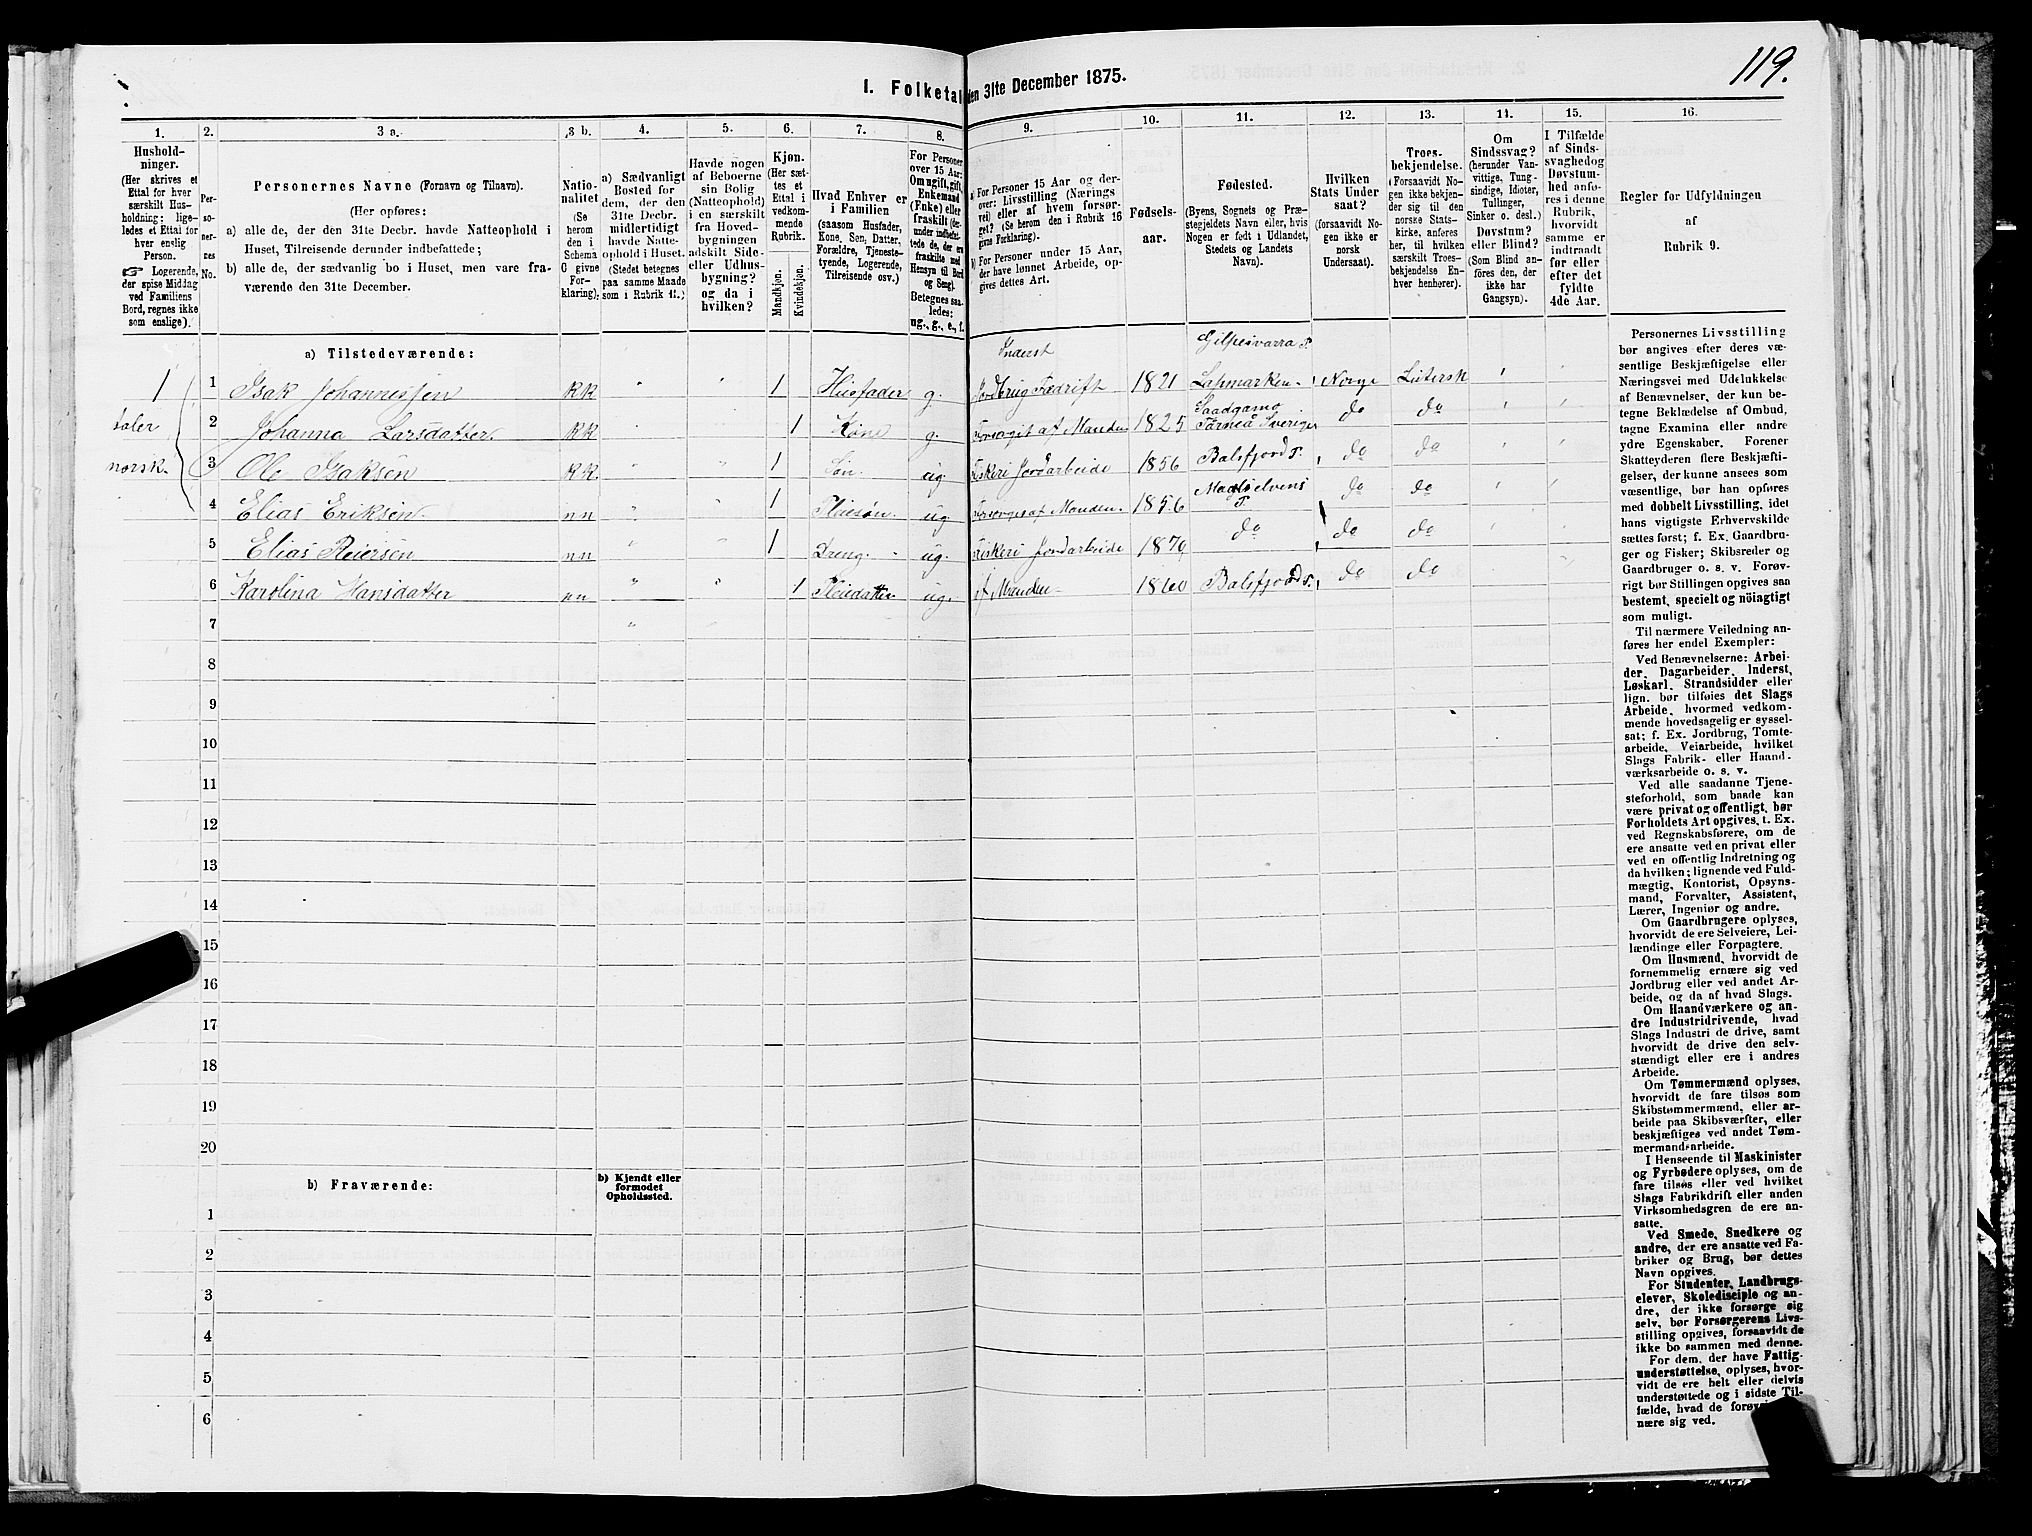 119.
I. Folketal den 31te December 1875.
1. 2. 3 a. 3 b. 4. 5. 6. 7. 8. 9. 10. 11. 12. 13. 14. 15. 16.
Hushold-
ninger.
(Her skrives et
Ettal for hver
særskilt Hus-
holdning; lige-
ledes et Ettal for
hver enslig
Person.
☞ Logerende,
der spise Middag
ved Familiens
Bord, regnes ikke
som enslige).
Per-
so-
ner-
nes
No.
Personernes Navne (Fornavn og Tilnavn).
(Her opføres:
a) alle de, der den 31te Decbr. havde Natteophold i
Huset, Tilreisende derunder indbefattede;
b) alle de, der sædvanlig bo i Huset, men vare fra-
værende den 31te December.
Natio-
nalitet
(Se
herom
den i
Schema
G givne
For-
klaring).
a) Sædvanligt
Bosted for
dem, der den
31te Decbr.
midlertidigt
havde Natte-
ophold i Huset.
(Stedet betegnes
paa samme Maade
som i Rubrik 11.)
Havde nogen
af Beboerne
sin Bolig
(Natteophold)
i en særskilt
fra Hoved-
bygningen
adskilt Side-
eller Udhus-
bygning?
og da i
hvilken?
Kjøn.
(Her sæt-
tes et
Ettal i
vedkom-
mende
Rubrik.
Mandkjøn.
Kvindekjøn.
Hvad Enhver er
i Familien
(saasom Husfader,
Kone, Søn, Datter,
Forældre, Tjeneste-
tyende, Logerende,
Tilreisende osv.)
For Personer
over 15 Aar:
Om ugift, gift,
Enkemand
(Enke) eller
fraskilt (der-
under indbefat-
tede de, der ere
fraskilte med
Hensyn til Bord
og Seng).
Betegnes saa-
ledes:
ug., g., e., f.
a) For Personer 15 Aar og der-
over: Livsstilling (Nærings-
vei) eller af hvem forsør-
get? (Se herom i Rubrik 16
givne Forklaring).
b) For Personer under 15 Aar,
der have lønnet Arbeide, op-
gives dettes Art.
Fødsels-
aar.
Fødested.
(Byens, Sognets og Præ-
stegjeldets Navn eller, hvis
Nogen er født i Udlandet,
Stedets og Landets
Navn).
Hvilken
Stats Under-
saat?
(forsaavidt No-
gen ikke er
norsk
Undersaat).
Troes-
bekjendelse.
(Forsaavidt No-
gen ikke bekjen-
der sig til den
norske Stats-
kirke, anføres
her, til hvilken
særskilt Troes-
bekjendelse En-
hver henhører).
Om
Sindssvag?
(herunder Van-
vittige, Tung-
sindige, Idioter,
Tullinger,
Sinker o. desl.)
Døvstum?
eller Blind?
(Som Blind an-
føres den, der
ikke har
Gangsyn).
I Tilfælde
af Sinds-
svaghed og
Døvstum-
hed anfø-
res i denne
Rubrik,
hvorvidt
samme er
indtraadt
før eller
efter det
fyldte
4de Aar.
Regler for Udfyldningen
af
Rubrik 9.
a) Tilstedeværende:
Inderst Gilpesvarra
1 1 Isak Johannessen KK " " 1 Husfader g. Jordbrug Fædrift 1821 Lapmarken Norge Lutersk
taler 2 Johanna Larsdatter KK 1 Kone g. Forsørget af Manden 1825 Saadgamo Torneå Sverige do do
norsk 3 Ole Isaksen KK 1 Søn ug. Fiskeri Jordarbeide 1856 Balsfjord do do
4 Elias Eriksen nn 1 Pleiesøn ug. Forsørges af Manden 1856 do do
5 Elias Reiersen nn 1 Dreng ug. Fiskeri Jordarbeide 1870 do do do
6 Karolina Hansdatter nn " " 1 Pleiedatter ug. af Manden 1860 Balsfjord do do
7
8
9
10
11
12
13
14
15
16
17
18
19
20
b) Fraværende:
b) Kjendt eller
formodet
Opholdssted.
1
2
3
4
5
6
Personernes Livsstilling
bør angives efter deres væ-
sentlige Beskjæftigelse eller
Næringsvei med Udelukkelse
af Benævnelser, der kun be-
tegne Beklædelse af Ombud,
tagne Examina eller andre
ydre Egenskaber. Forener
Skatteyderen flere Beskjæfti-
gelser, der kunne ansees som
væsentlige, bør han opføres
med dobbelt Livsstilling, idet
hans vigtigste Erhvervskilde
sættes først; f. Ex. Gaardbru-
ger og Fisker; Skibsreder og
Gaardbruger o. s. v. Forøv-
rigt bør Stillingen opgives saa
bestemt, specielt og nöiagtigt
som muligt.
Til nærmere Veiledning an-
føres her endel Exempler:
Ved Benævnelserne: Arbei-
der, Dagarbeider, Inderst,
Løskarl, Strandsidder eller
lign. bør tilføies det Slags
Arbeide, hvormed vedkom-
mende hovedsagelig er syssel-
sat; f. Ex. Jordbrug, Tomte-
arbeide, Veiarbeide, hvilket
Slags Fabrik- eller Haand-
værksarbeide o. s. v.
Ved alle saadanne Tjene-
steforhold, som baade kan
være privat og offentligt, bør
Forholdets Art opgives, t. Ex.
ved Regnskabsførere, om de
ere ansatte ved en privat eller
ved en offentlig Indretning og
da hvilken; lignende ved Fuld-
mægtig, Kontorist, Opsyns-
mand, Forvalter, Assistent,
Lærer, Ingeniør og andre.
Om Gaardbrugere oplyses,
hvorvidt de ere Selveiere, Lei-
lændinge eller Forpagtere.
Om Husmænd, hvorvidt de
fornemmelig ernære sig ved
Jordbrug eller ved andet Ar-
beide, og da af hvad Slags.
Om Haandværkere og an-
dre Industridrivende, hvad
Slags Industri de drive, samt
hvorvidt de drive den selv-
stændigt eller ere i andres
Arbeide.
Om Tømmermænd oplyses,
hvorvidt de fare tilsøs som
Skibstømmermænd, eller ar-
beide paa Skibsværfter, eller
beskjæftiges ved andet Tøm-
mermandsarbeide.
I Henseende til Maskinister
og Fyrbødere oplyses, om de
fare tilsøs eller ved hvilket
Slags Fabrikdrift eller anden
Virksomhedsgren de ere an-
satte.
Ved Smede, Snedkere og
andre, der ere ansatte ved Fa-
briker og Brug, bør dettes
Navn opgives.
For Studenter, Landbrugs-
elever, Skoledisciple og an-
dre, der ikke forsørge sig
selv, bør Forsørgerens Livs-
stilling opgives, forsaavidt de
ikke bo sammen med denne.
For dem, der have Fattig-
understøttelse, oplyses, hvor-
vidt de ere helt eller delvis
understøttede og i sidste Til-
fælde, hvad de
nære sig ved.